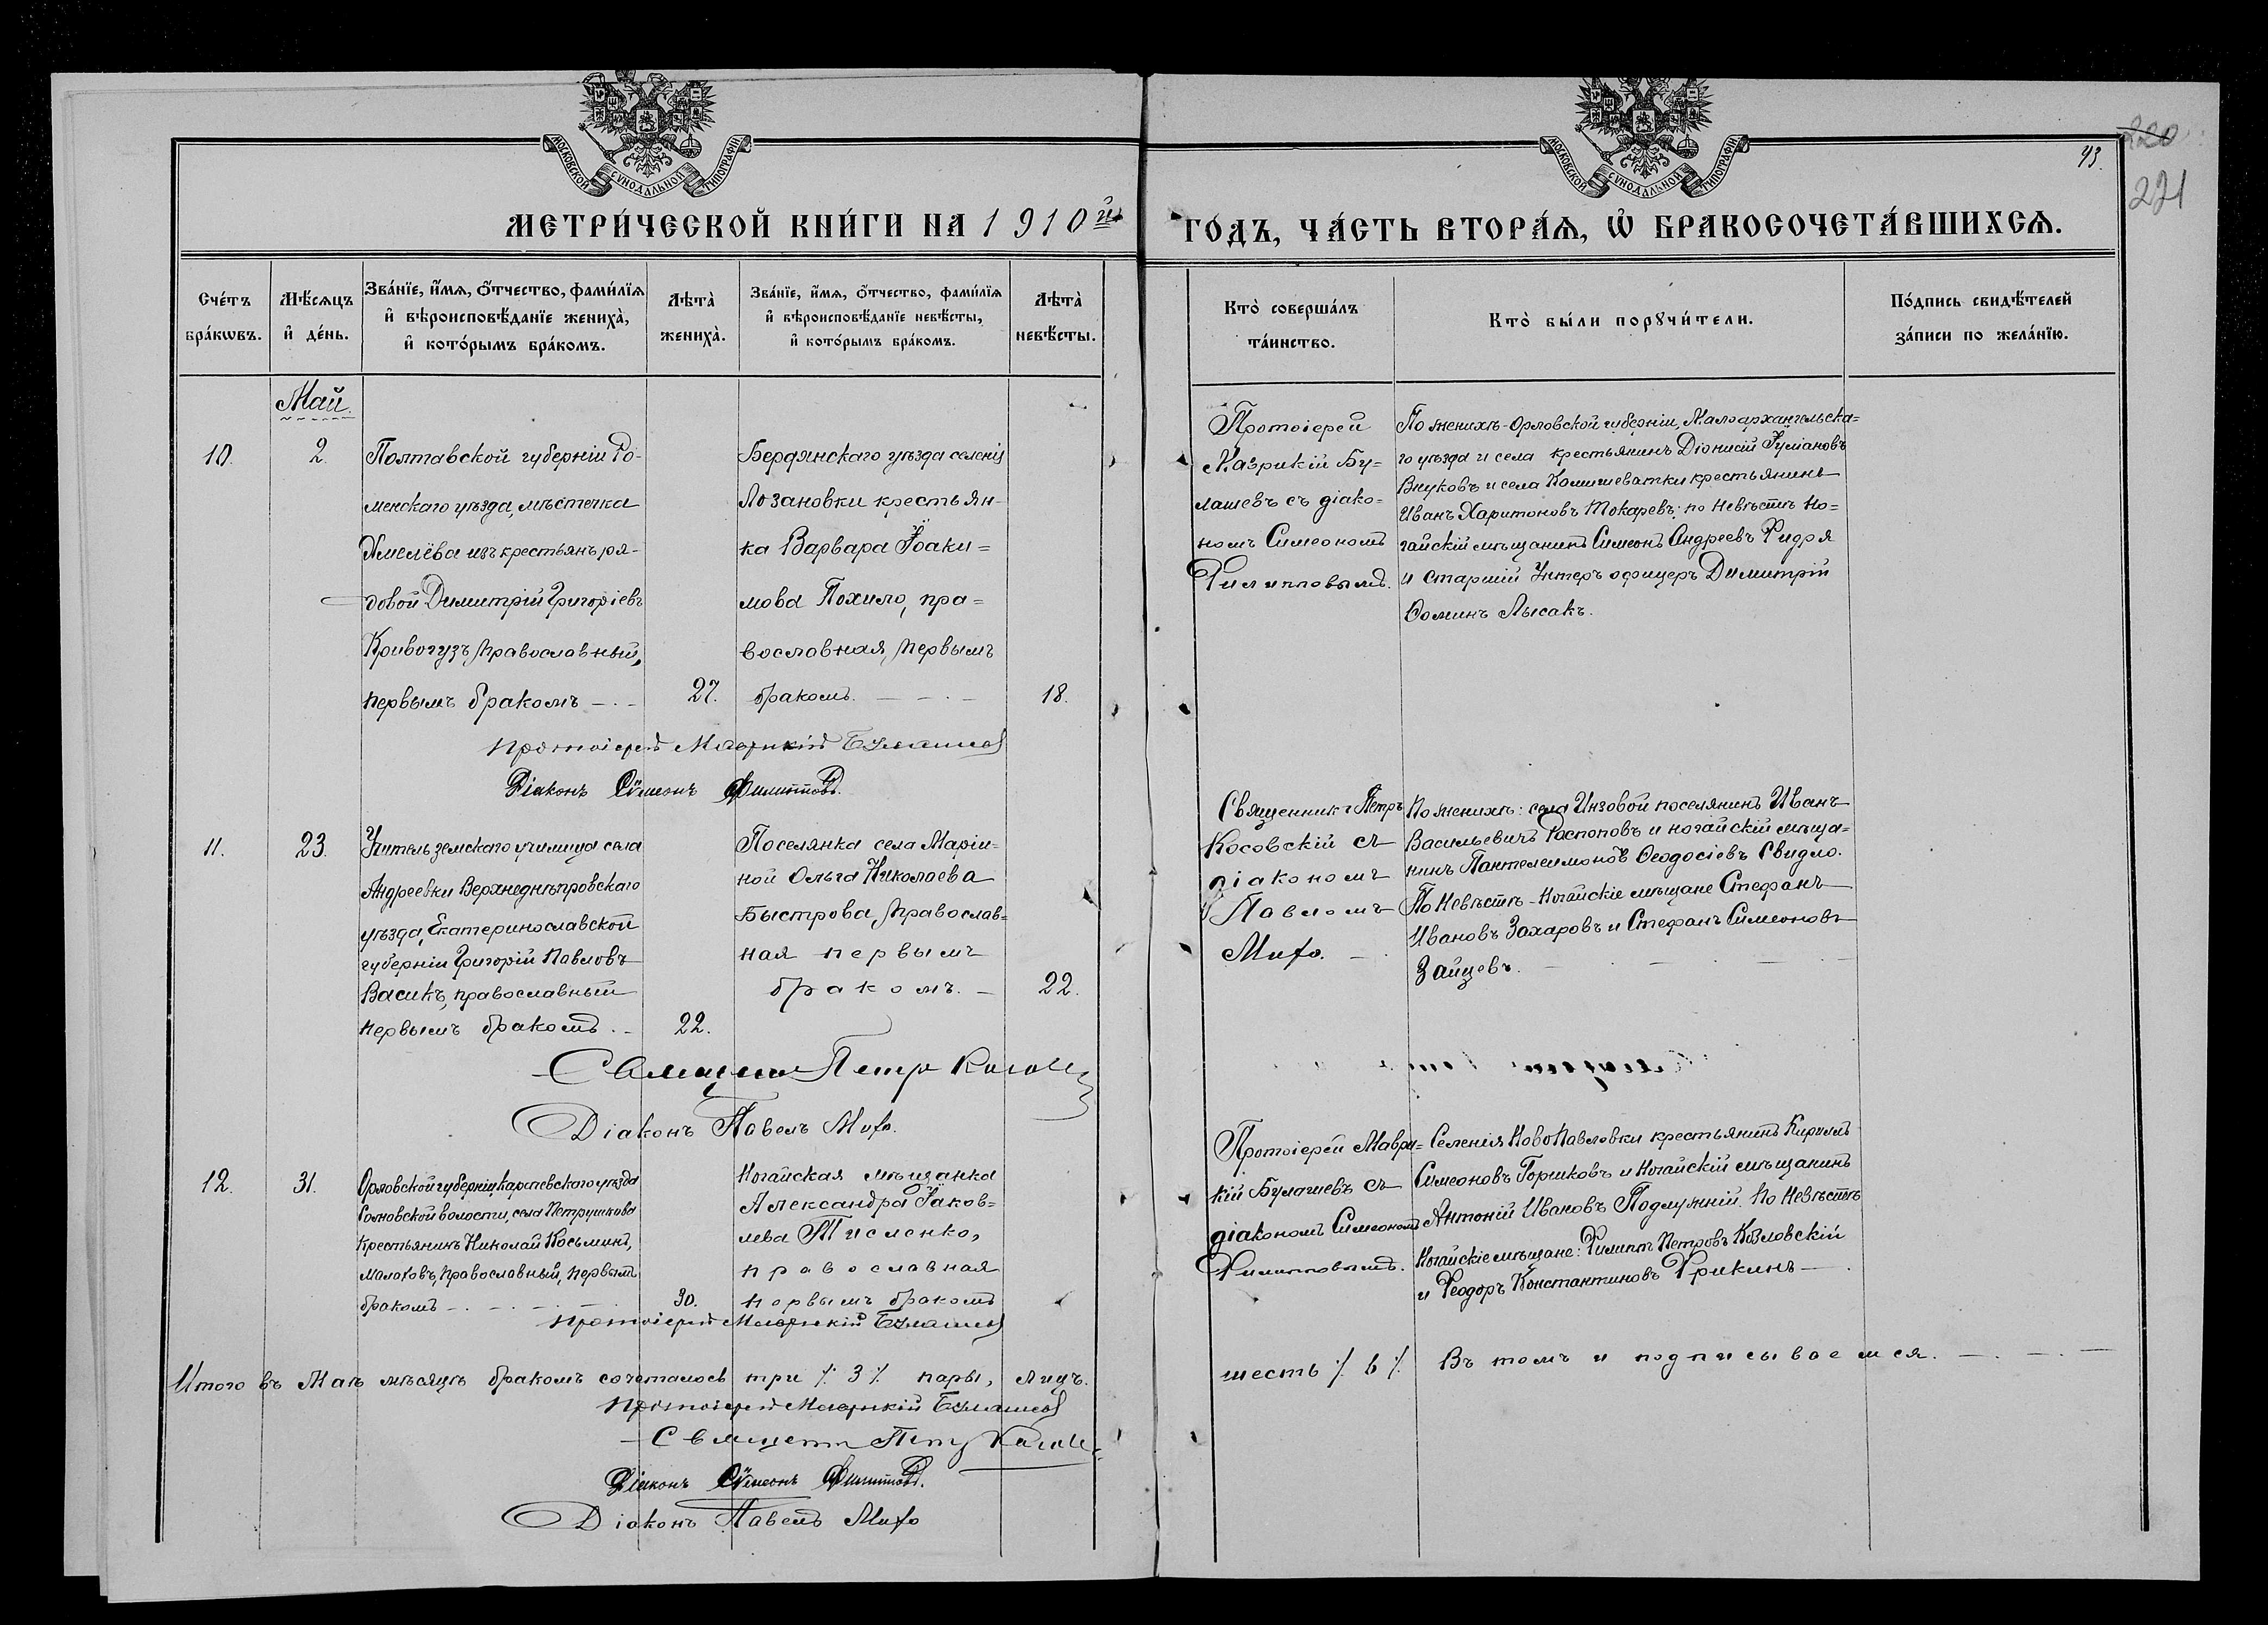 МОСКОВСКОЙ СѴНОДАЛЬНОЙ ТИПОГРАФІИ
МОСКОВСКОЙ СѴНОДАЛЬНОЙ ТИПОГРАФІИ
220
43.
221
МЕТРИ́ЧЕСКОЙ КНИ́ГИ НА 1910й ГО́ДЪ, ЧА́СТЬ ВТОРА́Ѧ, Ѡ҆ БРАКОСОЧЕТА́ВШИХСѦ.
Сче́тъ бра́кѡвъ.
Мѣ́сяцъ и҆ де́нь.
Зва́нїе, и҆́мѧ, ѻ҆́тчество, фами́лїѧ
и҆ вѣроисповѣ́данїе жениха̀,
и҆ кото́рымъ бра́комъ.
Лѣта̀ жениха̀.
Зва́нїе, и҆́мѧ, ѻ҆́тчество, фами́лїѧ
и҆ вѣроисповѣ́данїе невѣ́сты,
и҆ кото́рымъ бра́комъ.
Лѣта̀ невѣ́сты.
Кто̀ соверша́лъ
та́инство.
Кто̀ бы́ли порꙋчи́тели.
По́дпись свидѣ́телей
за́писи по жела́нїю.
Май.
10.
2.
Полтавской губерніи Ро-
менскаго уѣзда, мѣстечка
Хмелёва изъ крестьянъ ря-
довой Димитрій Григоріевъ
Кривогузъ, православный,
первымъ бракомъ
27.
Бердянскаго уѣзда селенія
Лозановки крестьян-
ка Варвара Іоаки=
мова Похило, пра=
вославная, первымъ
бракомъ.
18.
Протоіерей
Маврикій Бу=
лашевъ съ діако=
номъ Симеономъ
Филипповымъ.
По женихѣ-Орловской губерніи, Малоархангельска=
го уѣзда и села крестьянинъ Діонисій Іуліановъ
Внуковъ и села Комишеватки крестьянинъ
Иванъ Харитоновъ Токаревъ; по невѣстѣ но=
гайскій мѣщанинъ Симеонъ Андреевъ Фидря
и старшій унтеръ офицеръ Димитрій
Ѳоминъ Лысакъ.
Протоіерей Маврикій Булашевъ
Діаконъ Сѵмеонъ Филипповъ.
11.
23.
Учитель земскаго училища села
Андреевки Верхнеднѣпровскаго
уѣзда, Екатеринославской
губерніи Григорій Павловъ
Васикъ, православный
первымъ бракомъ.
22.
Поселянка села Маріи=
ной Ольга Николаева
Быстрова, православ=
ная первымъ
бракомъ.
22.
Священникъ Петръ
Косовскій съ
діакономъ
Павломъ
Михо.
По женихѣ: села Инзовой поселянинъ Иванъ
Васильевичъ Распоповъ и ногайскій мѣща=
нинъ Пантелеимонъ Ѳеодосіевъ Свидло.
По невѣстѣ-Ногайскіе мѣщане Стефанъ
Ивановъ Захаровъ и Стефанъ Симеоновъ
Зайцевъ.
Священ Петр Косовск
Діаконъ Павелъ Михо.
12.
31.
Орловской губерніи, Карачевскаго уѣзда
волости, села Петрушкова
крестьянинъ Николай Косьминъ,
Малаховъ, православный, первымъ
бракомъ
30.
Ногайская мѣщанка
Александра Іаков=
лева Тисленко,
православная
первымъ бракомъ
Протоіерей Маври=
кій Булашевъ съ
діакономъ Симеономъ
Филипповымъ.
Селенія НовоПавловки крестьянинъ Кириллъ
Симеоновъ Горшковъ и Ногайскій мѣщанинъ
Антоній Ивановъ Подлужній. По Невѣстѣ
Ногайскіе мѣщане: Филиппъ Петровъ Козловскій
и Ѳеодоръ Константиновъ Фрикинъ
Протоіерей Маврикій Булашевъ
Итого въ Маѣ мѣсяцѣ бракомъ сочеталось три ⁒ 3 ⁒ пары, лицъ. шесть ⁒ 6 ⁒ Въ томъ и подписываемся.
Протоіерей Маврикій Булашевъ
Священн Петр Косовск
Діаконъ Сѵмеонъ Филипповъ.
Діаконъ Павелъ Михо